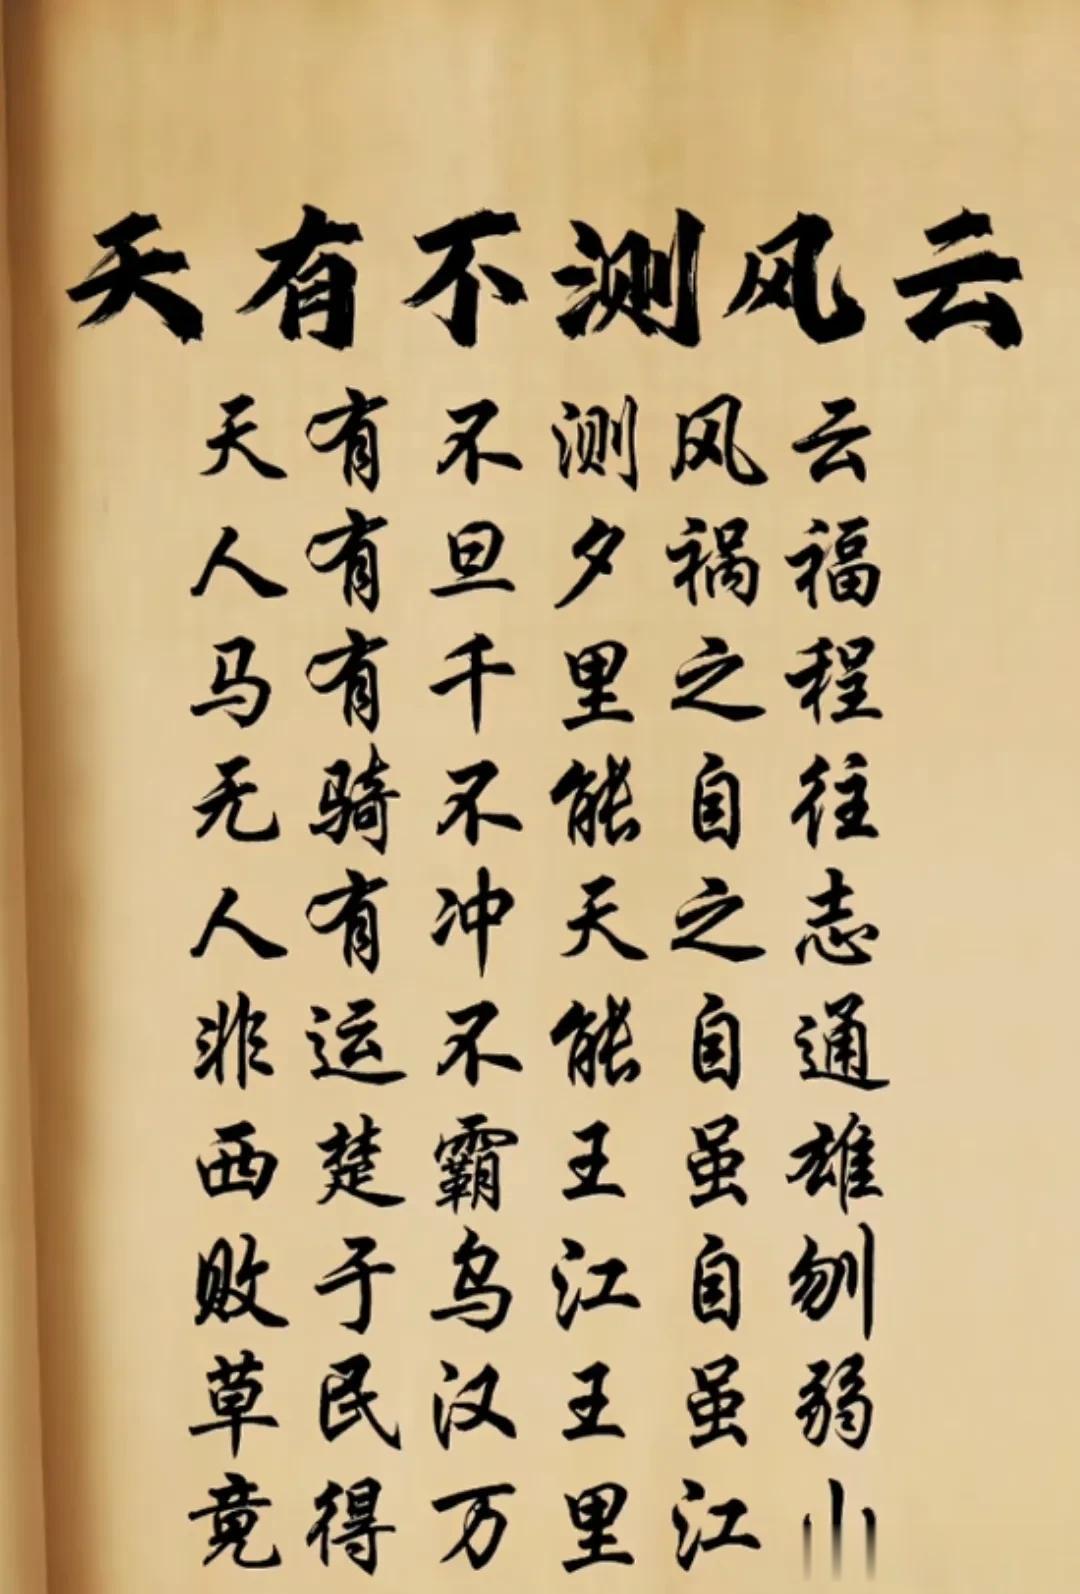 天有不测风云
天有不测风云
人有旦夕祸福
马有千里之程
无骑不能自往
人有冲天之志
非运不能自通
西楚霸王虽雄
败于乌江自刎
草民汉王虽弱
竟得万里江山